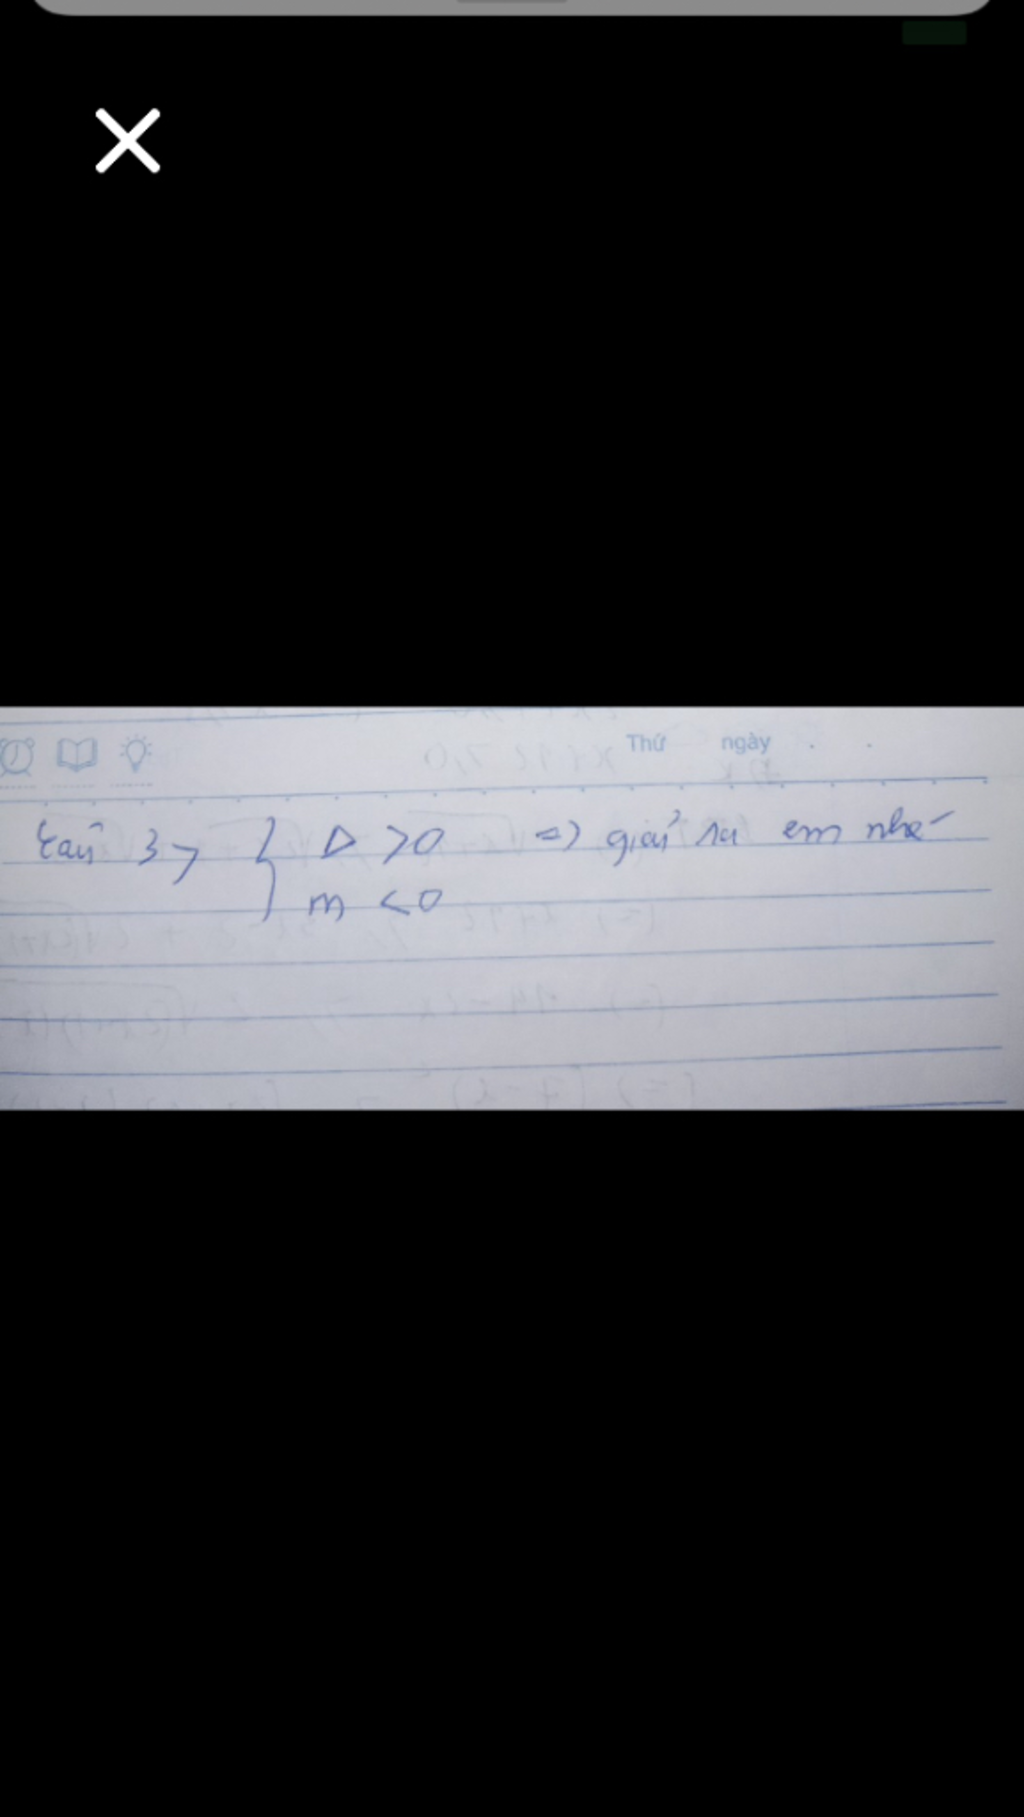 Thứ ngày . .
Câu 3> { Δ > 0 => giải ra em nhé
m < 0